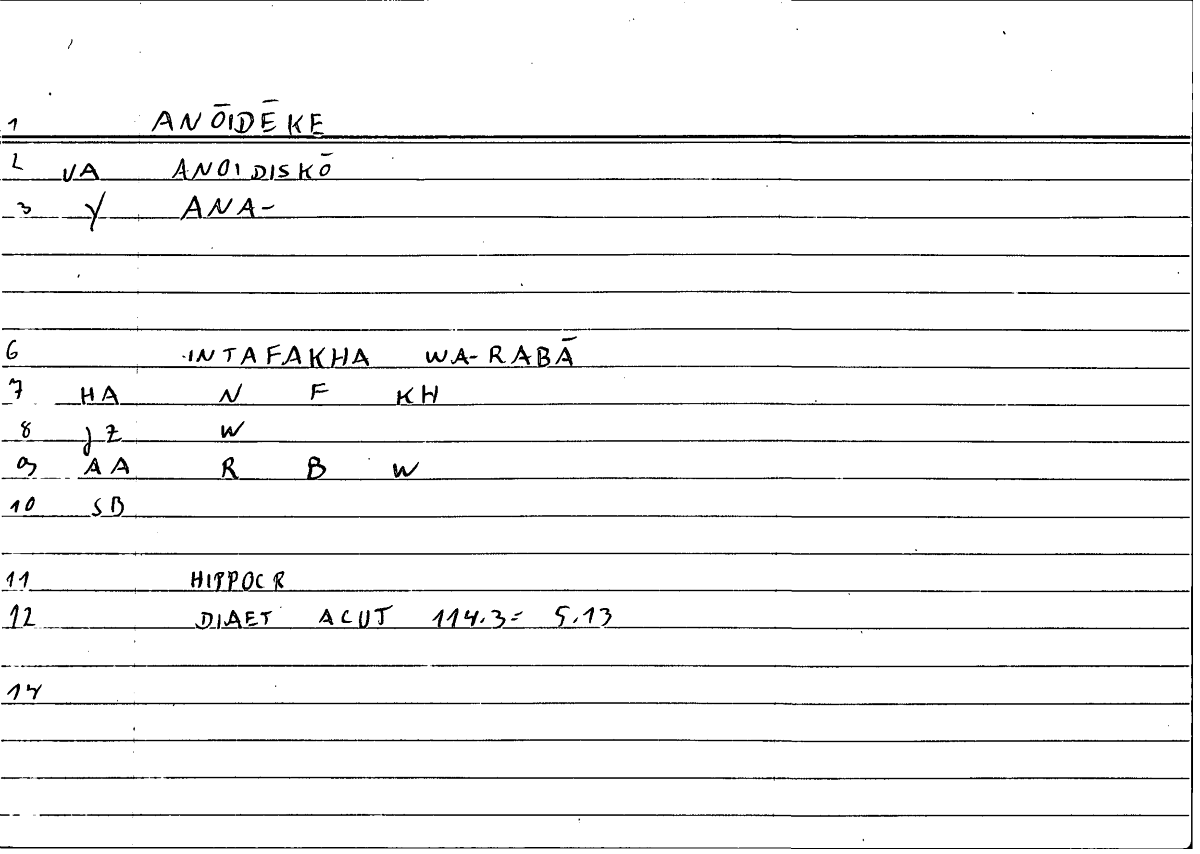 1 ANŌIDĒKE
2 VA ANOIDISKŌ
3 Y ANA-
6 INTAFAKHA WA-RABĀ
7 HA N F KH
8 JZ W
9 AA R B W
10 SB
11 HIPPOCR
12 DIAET ACUT 114.3= 5.13
14